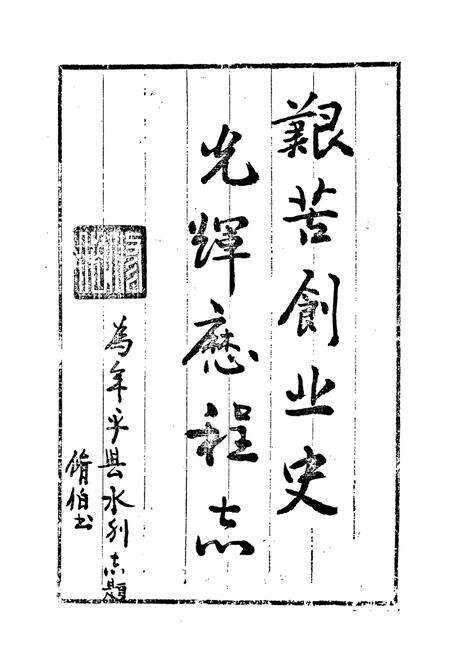 艱苦創业史
光輝歷程志
為牟平县水利志題
脩伯书